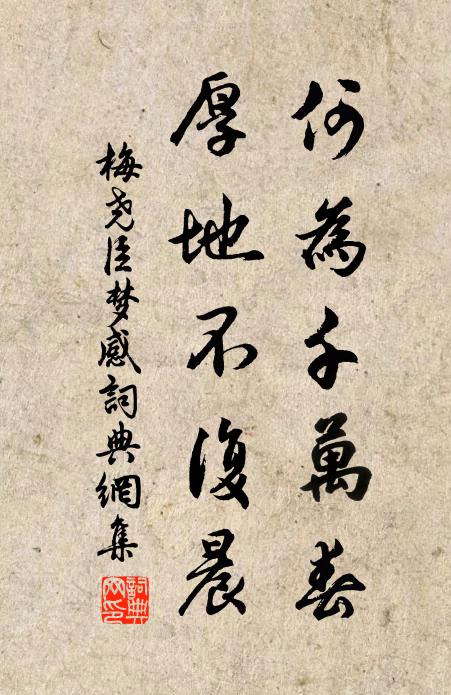 何為千萬春
厚地不復晨
梅尧臣梦感詞典網集
詞典網印